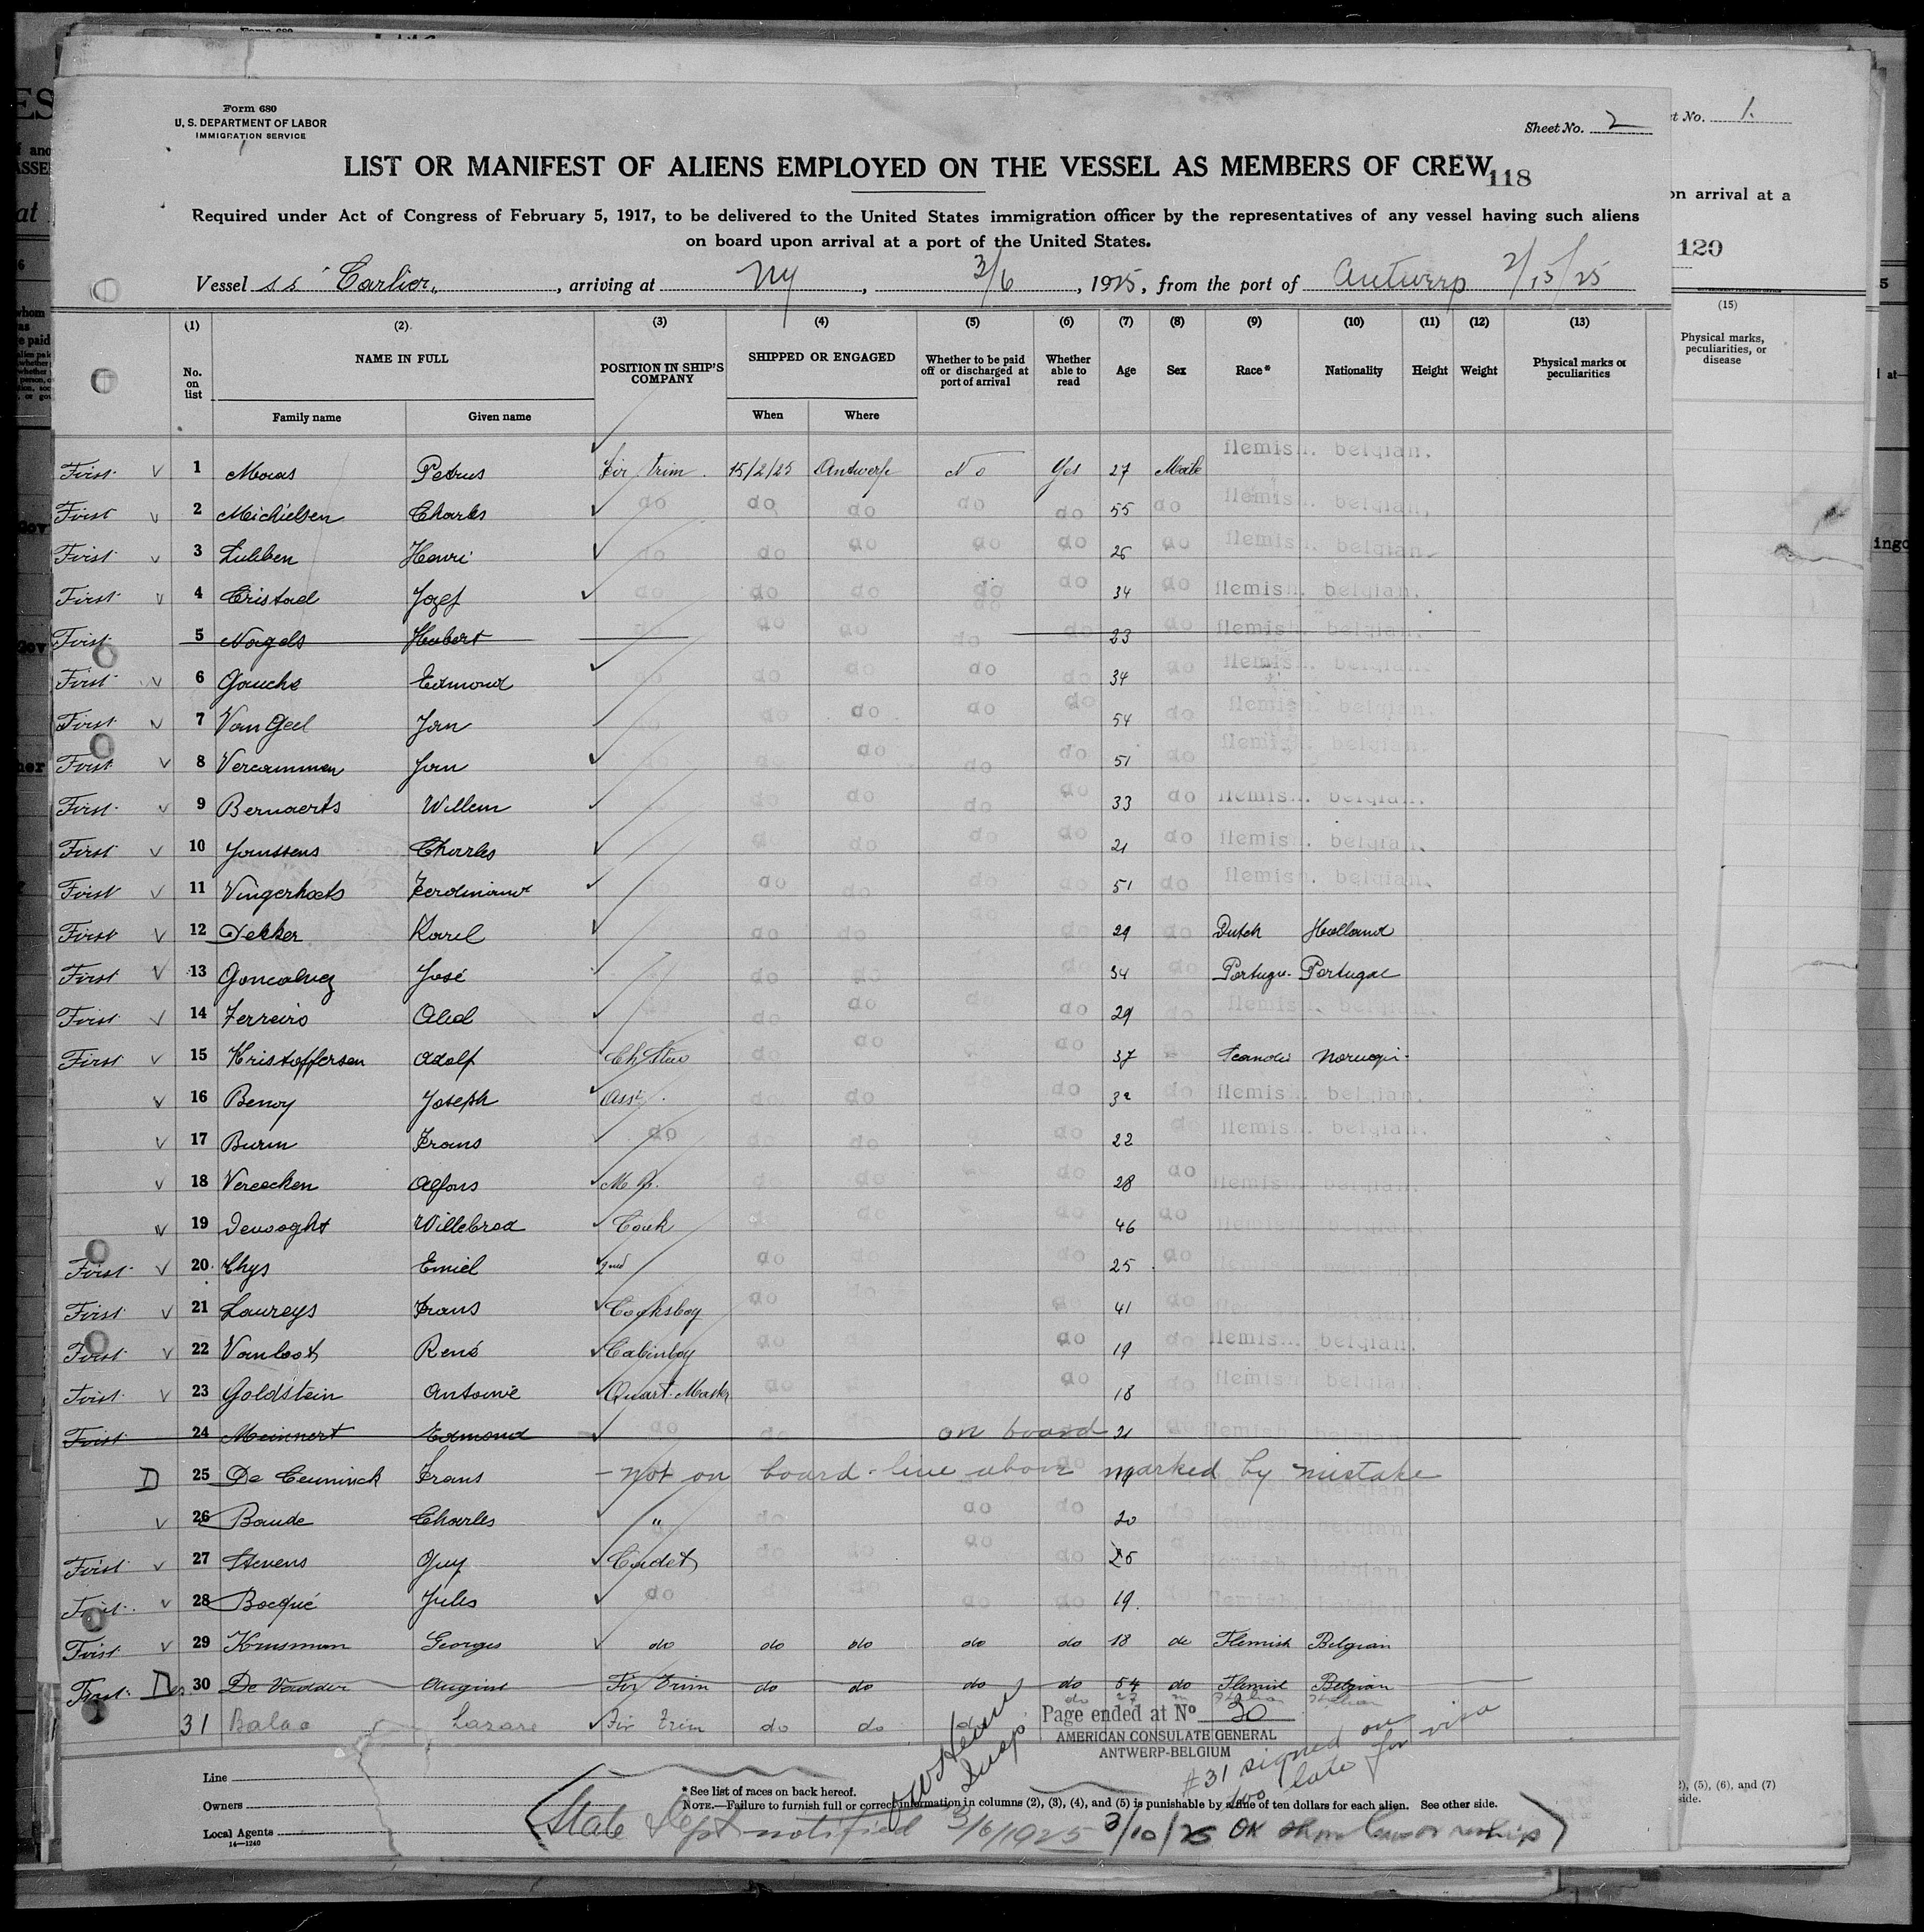 Form 680
U. S. DEPARTMENT OF LABOR
IMMIGRATION SERVICE
Sheet No. 2
t No. 1.
LIST OR MANIFEST OF ALIENS EMPLOYED ON THE VESSEL AS MEMBERS OF CREW
118
Required under Act of Congress of February 5, 1917, to be delivered to the United States immigration officer by the representatives of any vessel having such aliens
on board upon arrival at a port of the United States.
on arrival at a
120
Vessel ss Carlier, arriving at NY, 3/6, 1925, from the port of Antwerp 2/15/25
(1) (2) (3) (4) (5) (6) (7) (8) (9) (10) (11) (12) (13) (15)
No. on list NAME IN FULL POSITION IN SHIP'S COMPANY SHIPPED OR ENGAGED Whether to be paid off or discharged at port of arrival Whether able to read Age Sex Race* Nationality Height Weight Physical marks or peculiarities
Physical marks, peculiarities, or disease
Family name Given name When Where
First V 1 Petrus Fir trim. 15/2/25 Antwerp No Yes 27 Male flemish. belgian.
First V 2 Michielsen Charles do do do do do 55 do flemish. belgian.
First V 3 Henri do do do do do 26 do flemish. belgian.
First V 4 Jozef do do do do do 34 do flemish. belgian.
First 5 Nagels Hubert do do do do do 23 do flemish. belgian.
First V 6 Gauche Edmond do do do do do 34 do flemish. belgian.
First V 7 Van Geel Jan do do do do do 54 do flemish. belgian.
First V 8 Vercammen Jan do do do do 51 do flemish. belgian.
First V 9 Bernaerts Willem do do do do 33 do flemish. belgian.
First V 10 Janssens Charles do do do do 21 do flemish. belgian.
First V 11 Vingerhoets Ferdinand do do do do do 51 do flemish. belgian.
First V 12 Dekker Karel do do do 29 do Dutch Holland
First V 13 Goncalvez José do do do 34 do Portugu. Portugal
First V 14 Ferreiro Abel do do do do 29 do flemish. belgian.
First V 15 Kristoffersen Adolf Ch Stew do do do 37 Scandi Norwegi.
V 16 Benoy Joseph Asst. do do do 32 do flemish. belgian.
V 17 Burm Frans do do do do 22 do flemish. belgian.
V 18 Vereecken Alfons do do 28 do flemish. belgian.
V 19 Devooght Willebrod Cook do do do 46 do flemish. belgian.
First V 20 Emiel 2nd do do do 25 do
First V 21 Laureys Frans Cooksboy do do do 41 do
First V 22 Vanloot René Cabinboy do do 19 do flemish. belgian.
First V 23 Goldstein Antoine Quart. Mastr do do 18 flemish. belgian.
First 24 Meinnert Edmond do do on board 21 do flemish. belgian.
D 25 De Ceuninck Frans - not on board - line above marked by mistake 19
V 26 Baude Charles " do do do 20
First V 27 Stevens Guy Cadet do do do 26
First V 28 Bocqué Jules do do do do do 19.
First V 29 Krusman Georges do do do do do 18 do Flemish Belgian
First D 30 De Vadder August Fir trim do do do do 54 do Flemish Belgian
31 Balao Lazare Fir trim do do do do 27 m
Page ended at No 30
AMERICAN CONSULATE GENERAL
ANTWERP-BELGIUM
#31 signed on too late for visa
Line
Owners
Local Agents
14—1240
* See list of races on back hereof.
NOTE.—Failure to furnish full or correct information in columns (2), (3), (4), and (5) is punishable by a fine of ten dollars for each alien. See other side.
2), (5), (6), and (7)
side.
Insp
State Dept notified 3/6/1925 3/10/25 OK